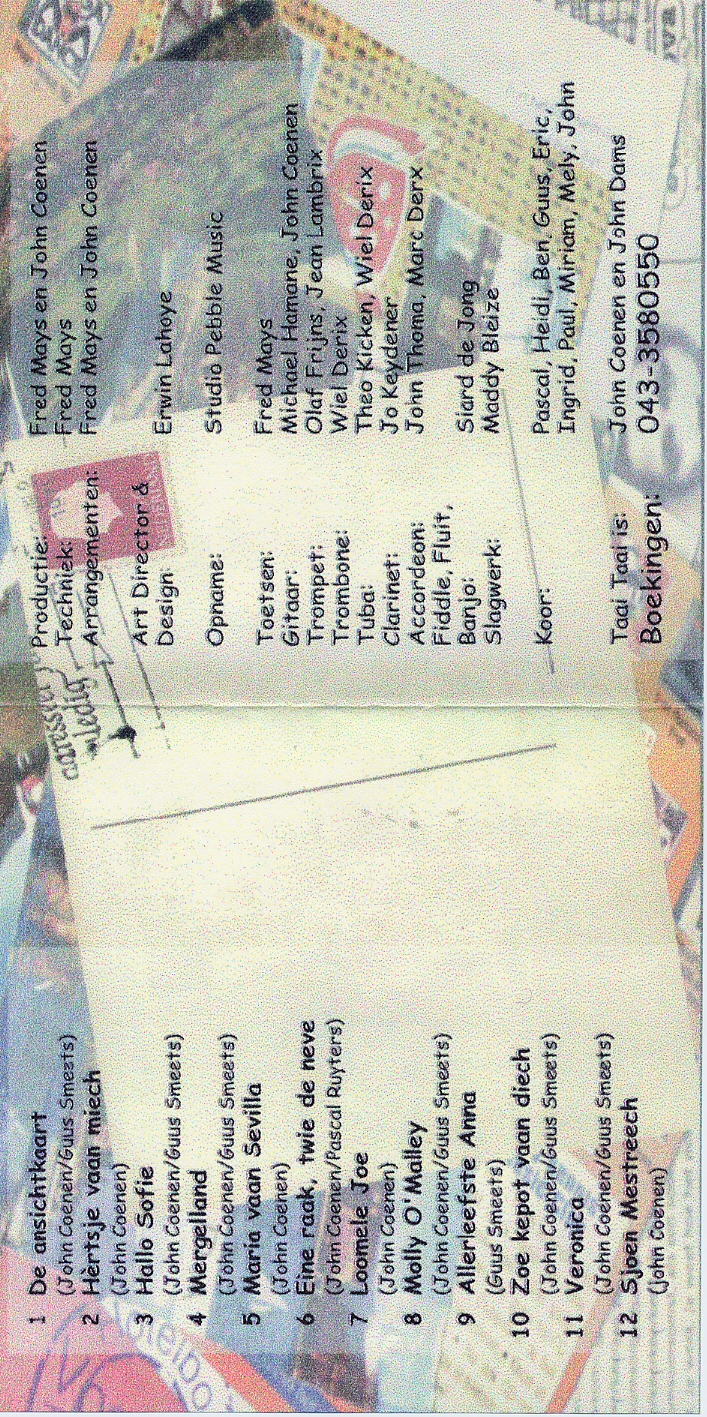 1 De ansichtkaart
(John Coenen/Guus Smeets)
2 Hèrtsje vaan miech
(John Coenen)
3 Hallo Sofie
(John Coenen/Guus Smeets)
4 Mergelland
(John Coenen/Guus Smeets)
5 Maria vaan Sevilla
(John Coenen)
6 Eine raak, twie de neve
(John Coenen/Pascal Ruyters)
7 Loomele Joe
(John Coenen)
8 Molly O'Malley
(John Coenen/Guus Smeets)
9 Allerleefste Anna
(Guus Smeets)
10 Zoe kepot vaan diech
(John Coenen/Guus Smeets)
11 Veronica
(John Coenen/Guus Smeets)
12 Sjoen Mestreech
(John Coenen)
ledig
Productie: Fred Mays en John Coenen
Techniek: Fred Mays
Arrangementen: Fred Mays en John Coenen
Art Director &
Design: Erwin Lahoye
Opname: Studio Pebble Music
Toetsen: Fred Mays
Gitaar: Michael Hamane, John Coenen
Trompet: Olaf Frijns, Jean Lambrix
Trombone: Wiel Derix
Tuba: Theo Kicken, Wiel Derix
Clarinet: Jo Keydener
Accordeon: John Thoma, Marc Derx
Fiddle, Fluit,
Banjo: Siard de Jong
Slagwerk: Maddy Bleize
Koor: Pascal, Heidi, Ben, Guus, Eric,
Ingrid, Paul, Miriam, Mely, John
Taai Taai is: John Coenen en John Dams
Boekingen: 043-3580550